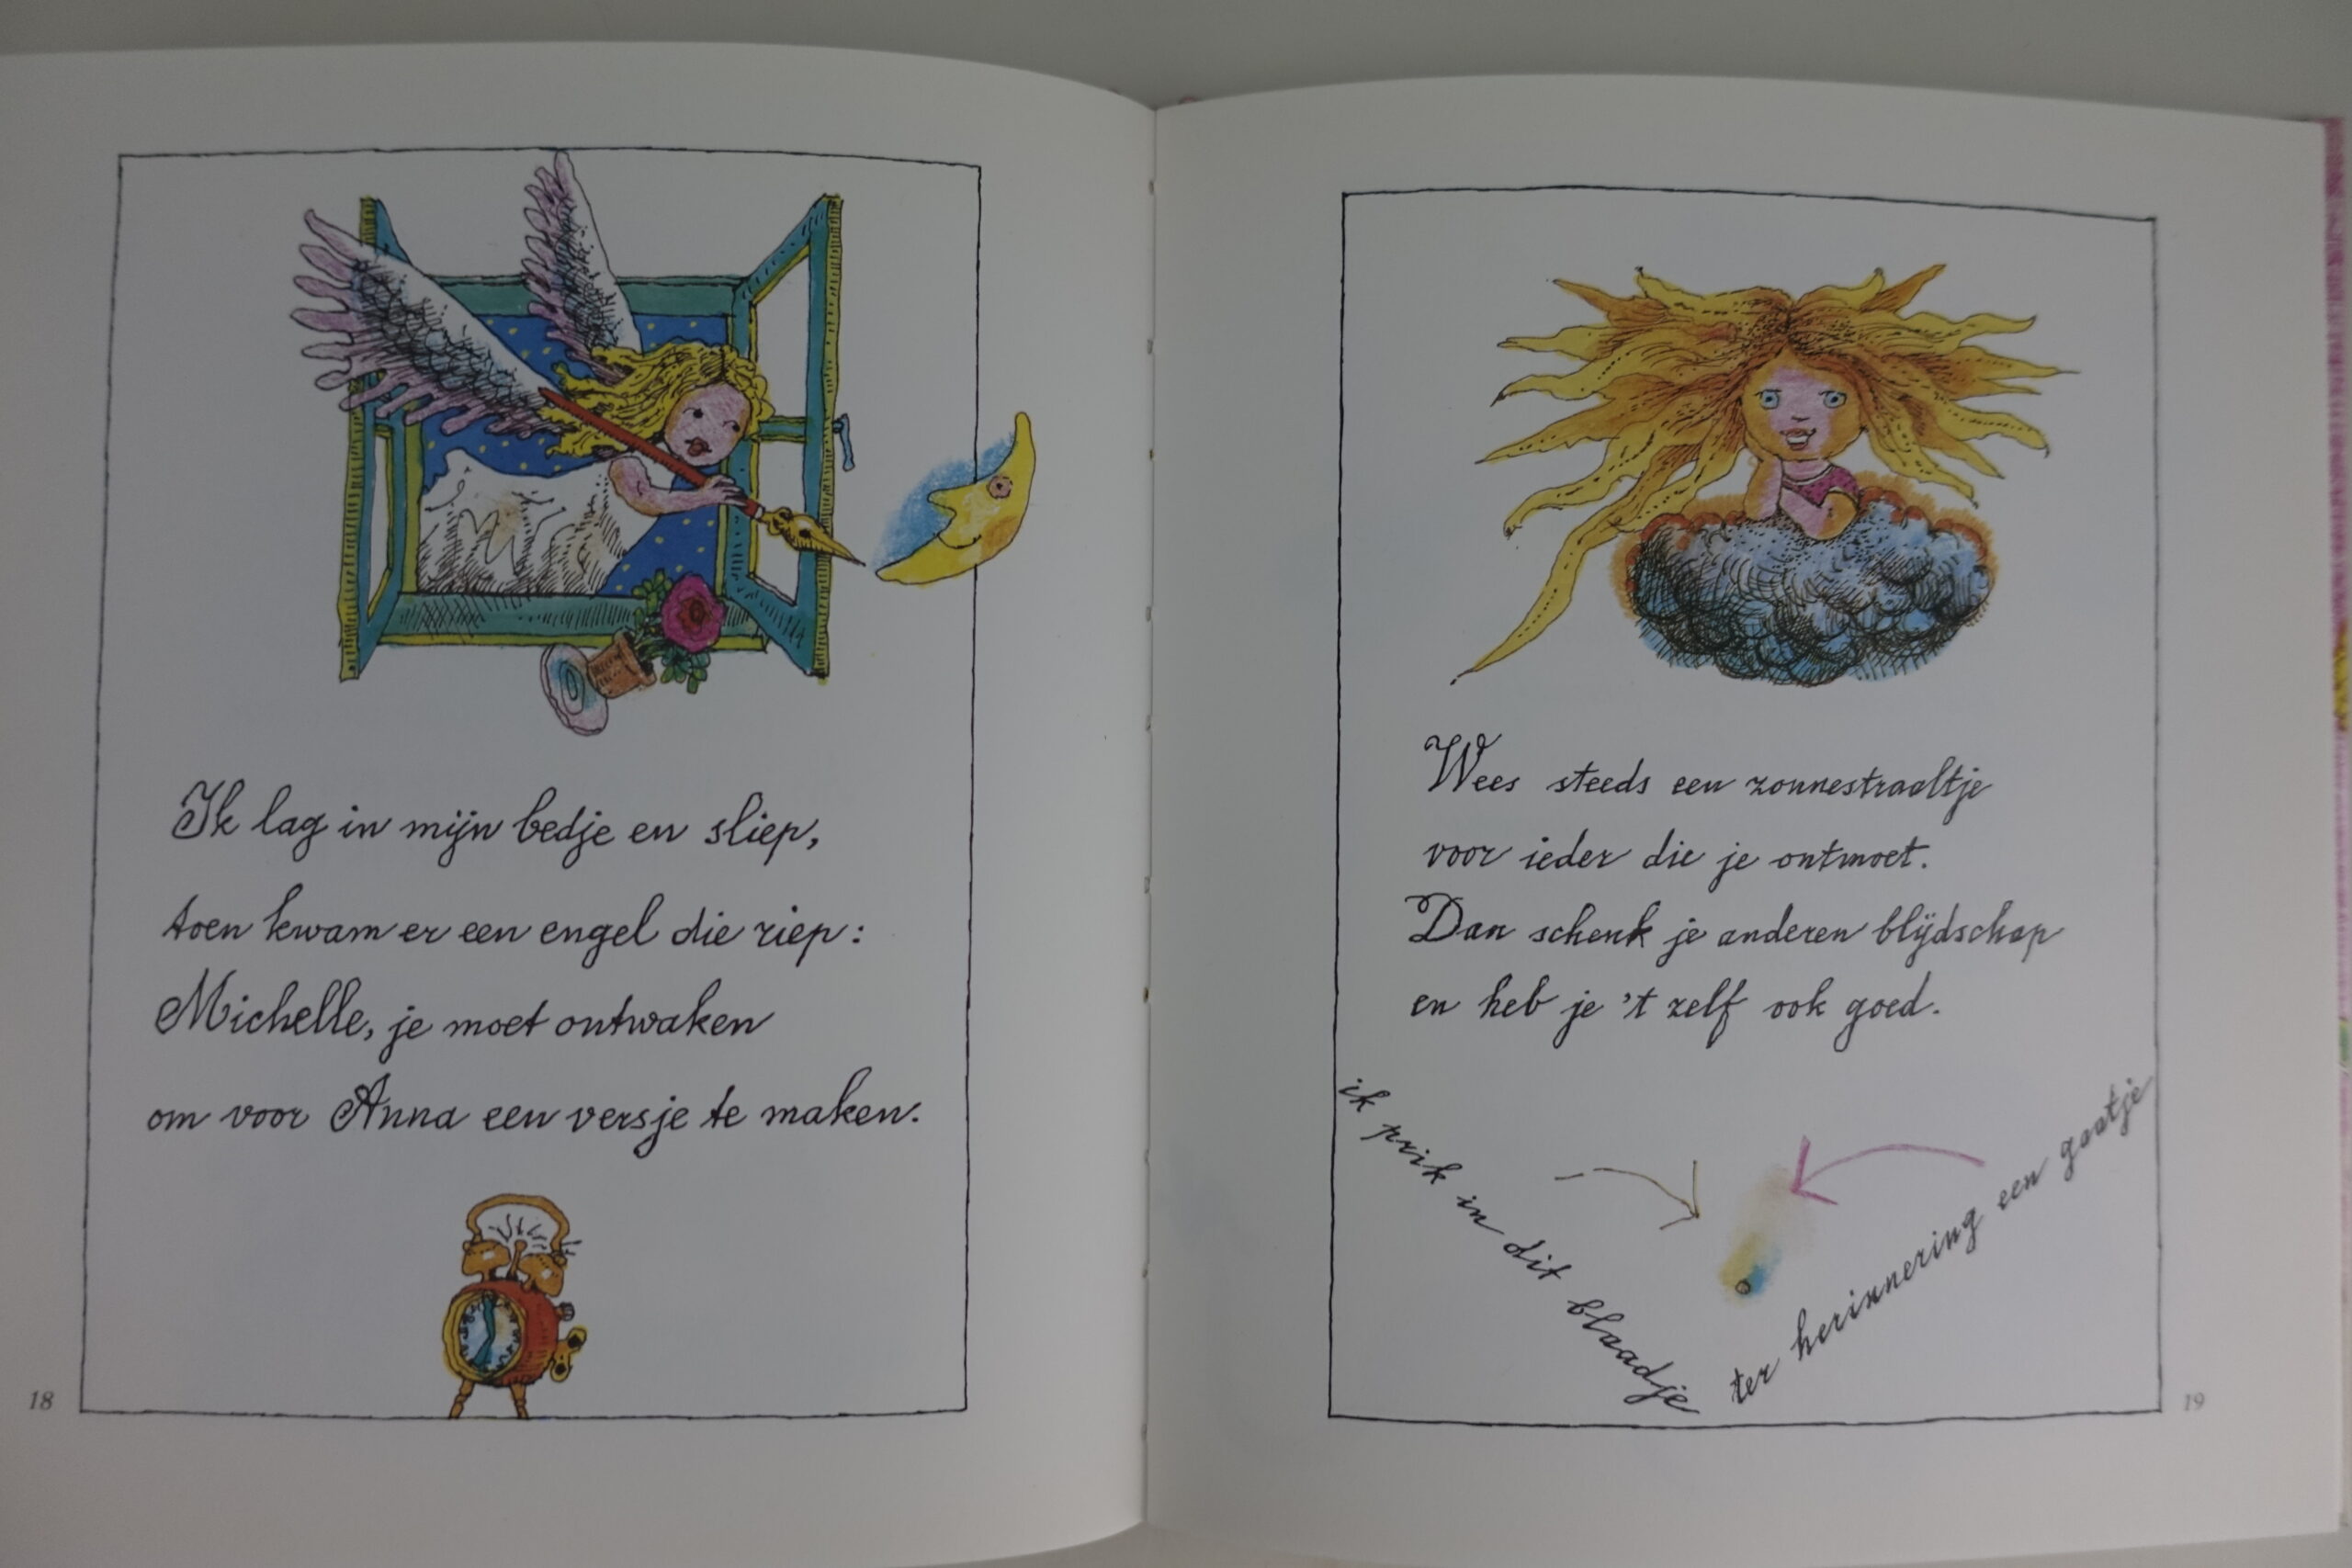 Ik lag in mijn bedje en sliep,
toen kwam er een engel die riep:
Michelle, je moet ontwaken
om voor Anna een versje te maken.
18
Wees steeds een zonnestraaltje
voor ieder die je ontmoet.
Dan schenk je anderen blijdschap
en heb je 't zelf ook goed.
ik prik in dit blaadje
ter herinnering een gaatje
19